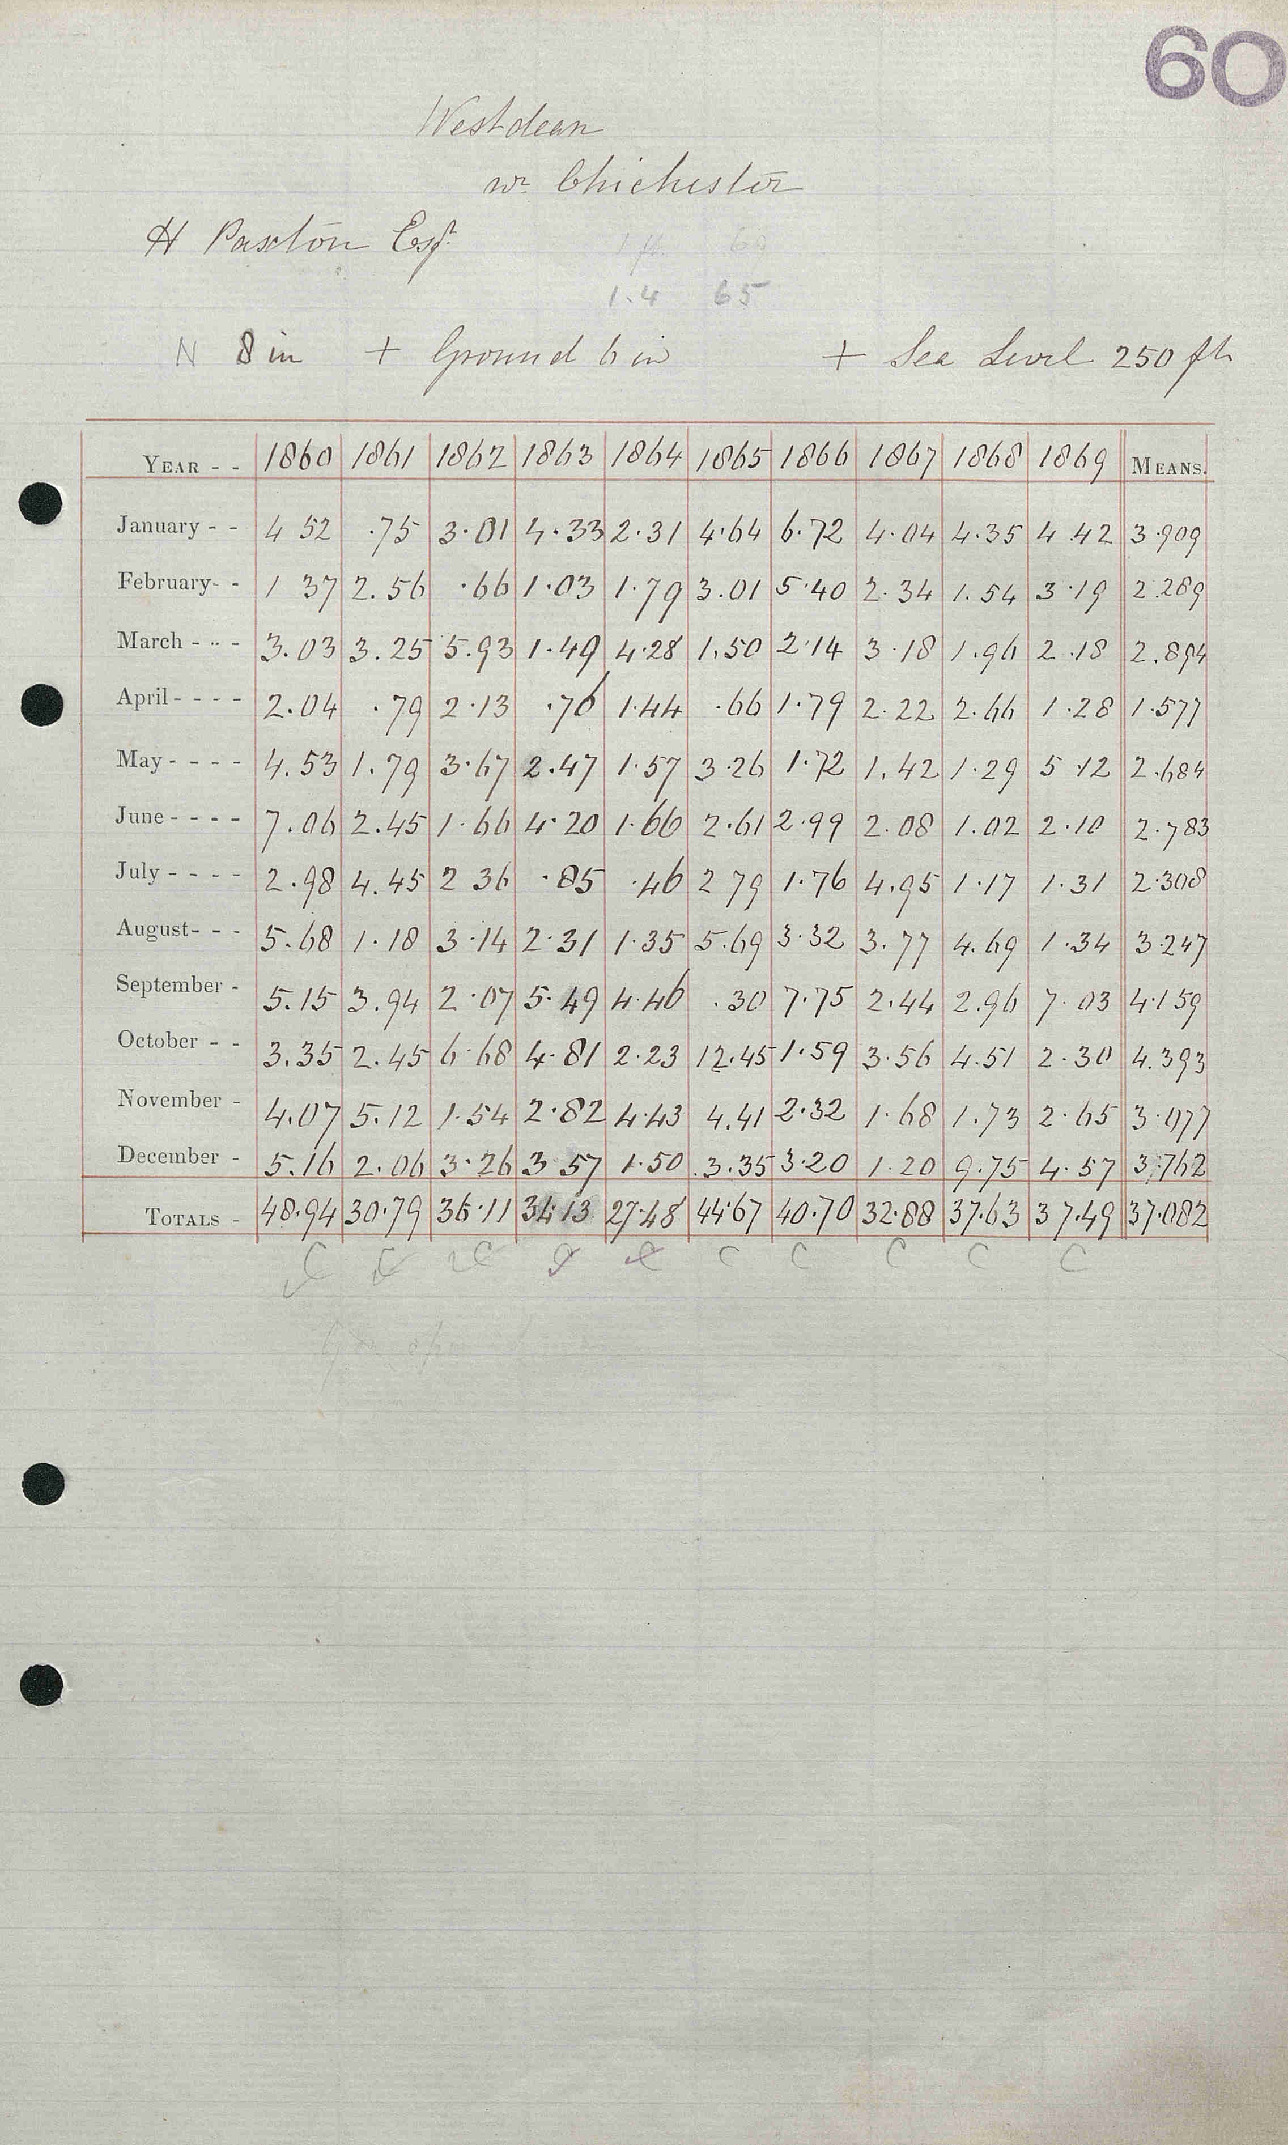 60
Westdean
nr Chichester
H Paxton Esqr
1 ft. 69
1.4 65
N 8 in + Ground 6 in + Sea Level 250 ft
YEAR - - 1860 1861 1862 1863 1864 1865 1866 1867 1868 1869 MEANS.
January - - 4 52 .75 3.01 4.33 2.31 4.64 6.72 4.04 4.35 4 42 3.909
February- - 1 37 2.56 .66 1.03 1.79 3.01 5.40 2.34 1.54 3.19 2.289
March - - - 3.03 3.25 5.93 1.49 4.28 1.50 2.14 3.18 1.96 2.18 2.894
April - - - - 2.04 .79 2.13 .76 1.44 .66 1.79 2.22 2.66 1.28 1.577
May - - - - 4.53 1.79 3.67 2.47 1.57 3.26 1.72 1.42 1.29 5.12 2.684
June - - - - 7.06 2.45 1.66 4.20 1.66 2.61 2.99 2.08 1.02 2.10 2.783
July - - - - 2.98 4.45 2 36 .85 .46 2 79 1.76 4.95 1.17 1.31 2.308
August- - - 5.68 1.18 3.14 2.31 1.35 5.69 3.32 3.77 4.69 1.34 3.247
September - 5.15 3.94 2.07 5.49 4.46 .30 7.75 2.44 2.96 7.03 4.159
October - - 3.35 2.45 6.68 4.81 2.23 12.45 1.59 3.56 4.51 2.30 4.393
November - 4.07 5.12 1.54 2.82 4.43 4.41 2.32 1.68 1.73 2.65 3.077
December - 5.16 2.06 3.26 3 57 1.50 3.35 3.20 1.20 9.75 4.57 3.762
TOTALS - 48.94 30.79 36.11 34.13 27.48 44.67 40.70 32.88 37.63 37.49 37.082
C C C C C C C C C C